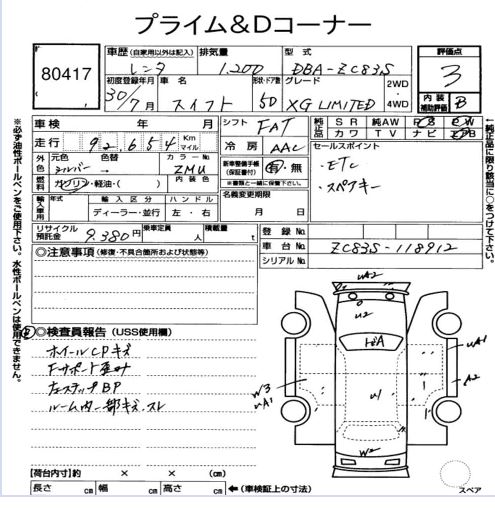 プライム&Dコーナー
80417
車歴 (自家用以外は記入) 排気量 型式 評価点
レンタ 1,200 DBA-ZC83S 3
初度登録年月 車名 形状・ドア数 グレード 2WD 内装補助評価 B
30/7月 スイフト 5D XG LIMITED 4WD
車検 年 月 シフト FAT 純正品 SR 純AW PS PW
カワ TV ナビ
走行 92,654 Km マイル 冷房 AAC セールスポイント
外色 元色 色替 カラーNo. 新車整備手帳(保証書付) 有・無 ・ETC
シルバー → ZMU ※書類と一緒に保管下さい。 ・スペアキー
燃料 ガソリン・軽油・( ) 内装色 名義変更期限
輸入車用 年式 輸入区分 ハンドル 月 日
ディーラー・並行 左・右
リサイクル預託金 9,380円 乗車定員 人 積載量 t 登録No.
車台No. ZC83S-118912
シリアルNo.
◎注意事項 (修復・不具合箇所および状態等)
◎検査員報告 (USS使用欄)
ホイールCPキズ
Fサポート歪み
左ステップBP
ルーム内一部キズ、スレ
UA2
U2
A
UA1
A2
W3
UA1
U1
W2
【荷台内寸】約 × × (cm)
長さ cm 幅 cm 高さ cm ←(車検証上の寸法)
スペア
※必ず油性ボールペンをご使用下さい。水性ボールペンは使用できません。
←純正品に限り該当に○をつけて下さい。